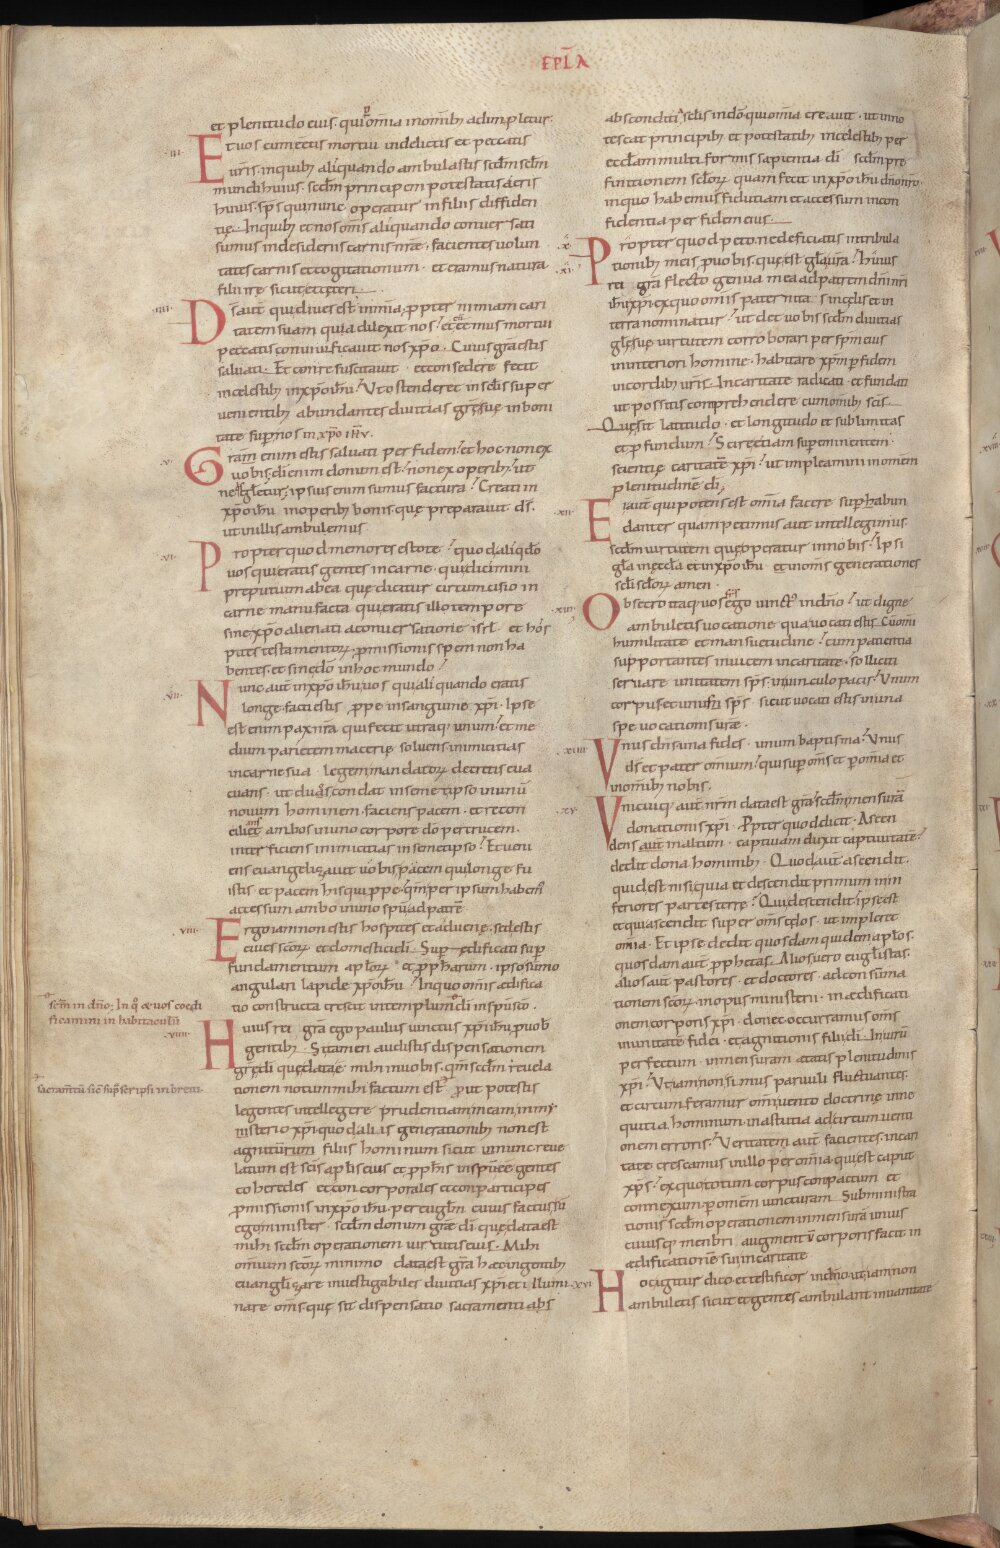 EPL̄A
et plenitudo eius. qui om̄ia in om̄ib; adimpletur.
.III.
Et uos cum essetis mortui in delictis et peccatis
ur̄is. in quib; aliquando ambulastis sc̄dm sc̄lm
mundi huius. sc̄dm principem potestatis aeris
huius. sp̄s qui nunc operatur in filiis diffiden
tię. In quib; et nos om̄s aliquando conuersati
sumus in desideriis carnis n̄rae. facientes uolun
tates carnis et cogitationum. et eramus natura
filii irę sicut et ceteri.
.IIII.
Ds̄ aut̄ qui diues est in mīa, ꝓpter nimiam cari
tatem suam qua dilexit nos. et cū essemus mortui
peccatis conuiuificauit nos xp̄o. Cuius gr̄a estis
saluati. Et conresuscitauit. et consedere fecit
in celestib; in xp̄o ih̄u. Ut ostenderet in sc̄lis super
uenientib; abundantes diuitias gr̄ę suę in boni
tate sup̄ nos in xp̄o ih̄u.
.V.
Gratia enim estis saluati per fidem. et hoc non ex
uobis. di enim donum est. non ex operib; ut
ne q̄s gl̄etur. ipsius enim sumus factura. Creati in
xp̄o ih̄u in operib; bonis. quę preparauit ds̄.
ut in illis ambulemus
.VI.
Propter quod memores estote. quod aliq̄do
uos qui eratis gentes in carne. qui dicimini
preputium ab ea quę dicitur circumcisio in
carne manufacta qui eratis illo tempore
sine xp̄o alienati a conuersatione isrl̄. et hos
pites testamentorꝝ, ꝓmissionis spem non ha
bentes. et sine dō in hoc mundo.
.VII.
Nunc aut̄ in xp̄o ih̄u, uos qui aliquando eratis
longe. facti estis ꝓpe in sanguine xp̄i. Ipse
est enim pax nr̄a qui fecit utraq; unum. et me
dium parietem macerię soluens. inimicitias
in carne sua. legem mandatorꝝ decretis eua
cuans. ut duos condat in semetipso in unū
nouum hominem. faciens pacem. et recon
ciliet ambos in uno corpore dō per crucem.
interficiens inimicitias in semetipso. Et ueni
ens euangelizauit uobis pacem qui longe fu
istis. et pacem his qui ꝓpe. qm̄ per ipsum habem;
accessum ambo in uno spū ad patrē.
.VIII.
Ergo iam non estis hospites et aduenę. sed estis
ciues sc̄orꝝ et domestici di. Superaedificati sup̄
fundamentum apl̄orꝝ et ꝓphetarum. ipso sūmo
angulari lapide xp̄o ih̄u. In quo om̄is aedifica
tio constructa crescit in templum di in spū sc̄o.
sc̄m in dn̄o; In q̊ & uos coędi
ficamini in habitaculū
.VIIII.
Huius rei gr̄a ego paulus uinctus xp̄i ih̄u, ꝓ uob̄
gentib;. Si tamen audistis dispensationem
gr̄ę di quę data ē mihi in uobis. qm̄ sc̄dm reuela
tionem notum mihi factum est. prout potestis
sacramentū sic̄ sup̄ scripsi in breui.
legentes intellegere prudentiam meam in my
sterio xp̄i. quod aliis generationib; non est
agnitum filiis hominum sicut nunc reue
latum est sc̄is apl̄is eius et ꝓphis in spū. ēe gentes
coheredes et concorporales et conparticipes
ꝓmissionis in xp̄o ih̄u. per euglm̄. cuius factus sū
ego minister. sc̄dm donum gr̄ae di quę data est
mihi sc̄dm operationem uirtutis eius. Mihi
om̄ium sc̄orꝝ minimo data est gr̄a haec. in gentib;
euangelizare inuestigabiles diuitias xp̄i. et illumi
nare om̄s quę sit dispensatio sacramenti abs
conditi a sc̄lis in dō. qui om̄ia creauit. ut inno
tescat principib; et potestatib; in celestib; per
eccl̄am multiformis sapientia di. sc̄dm pre
finitionem sc̄lorꝝ quam fecit in xp̄o ih̄u dn̄o nr̄o.
in quo habemus fiduciam et accessum in con
fidentia per fidem eius.
.X.
Propter quod peto. ne deficiatis in tribula
tionib; meis ꝓ uobis. quę est gl̄a ur̄a. huius
.XI.
rei gr̄a flecto genua mea ad patrem dn̄i nr̄i
ih̄u xp̄i. ex quo om̄is paternitas in cęlis et in
terra nominatur. ut det uobis sc̄dm diuitias
gl̄ę suę uirtutem corroborari per sp̄m eius
in interiori homine. habitare xp̄m ꝑ fidem
in cordib; ur̄is. In caritate radicati. et fundati
ut possitis comprehendere cum om̄ib; sc̄is
Quę sit latitudo. et longitudo et sublimitas
et ꝓfundum. Scire etiam superminentem
scientię caritatē xp̄i. ut impleamini in om̄em
plenitudinē di,
.XII.
Ei aut̄ qui potens est om̄ia facere sup̄habun
danter quam petimus aut intellegimus
sc̄dm uirtutem quę operatur in nobis. Ipsi
gl̄a in ęccl̄a et in xp̄o ih̄u. et in om̄s generationes
sc̄li sc̄lorꝝ amen.
.XIII.
Obsecro itaq; uos ego uinctꝰ in dn̄o. ut digne
ambuletis uocatione qua uocati estis. Cū om̄i
humilitate et mansuetudine. cum patientia
supportantes inuicem in caritate. solliciti
seruare unitatem sp̄s. in uinculo pacis. Unum
corpus et unus sp̄s sicut uocati estis in una
spe uocationis ur̄ae.
.XIIII.
Unus dn̄s una fides. unum baptisma. Unus
ds̄ et pater om̄ium. qui sup̄ om̄s et ꝑ om̄ia et
in om̄ib; nobis.
.XV.
Unicuiq; aut̄ nr̄m data est gr̄a. sc̄dm mensurā
donationis xp̄i. Ꝓpter quod dicit. Ascen
dens aut̄ in altum. captiuam duxit captiuitatē.
dedit dona hominib;. Quod aut̄ ascendit.
quid est nisi quia et descendit primum in in
feriores partes terrę. Qui descendit ipse est
et qui ascendit super om̄s cęlos. ut impleret
om̄ia. Et ipse dedit quosdam quidem apl̄os.
quosdam aut̄ ꝓphetas. Alios uero euglistas.
alios aut̄ pastores. et doctores. ad consūma
tionem sc̄orꝝ in opus ministerii. in aedificati
onem corporis xp̄i. donec occurramus om̄s
in unitate fidei. et agnitionis filii di. In uirū
perfectum. in mensuram aetatis plenitudinis
xp̄i. Ut iam non simus paruuli fluctuantes.
et circumferamur om̄i uento doctrinę in ne
quitia hominum. in astutia ad circumuenti
onem erroris. Ueritatem aut̄ facientes. in cari
tate crescamus in illo per om̄ia. qui est caput
xp̄s. ex quo totum corpus compactum et
connexum ꝑ om̄em iuncturam. Subministra
tionis sc̄dm operationem in mensurā unius
cuiusq; membri. augmentū corporis facit in
aedificationē sui in caritate
.XVI.
Hoc igitur dico et testificor in dn̄o. ut iam non
ambuletis sicut et gentes ambulant in uanitate